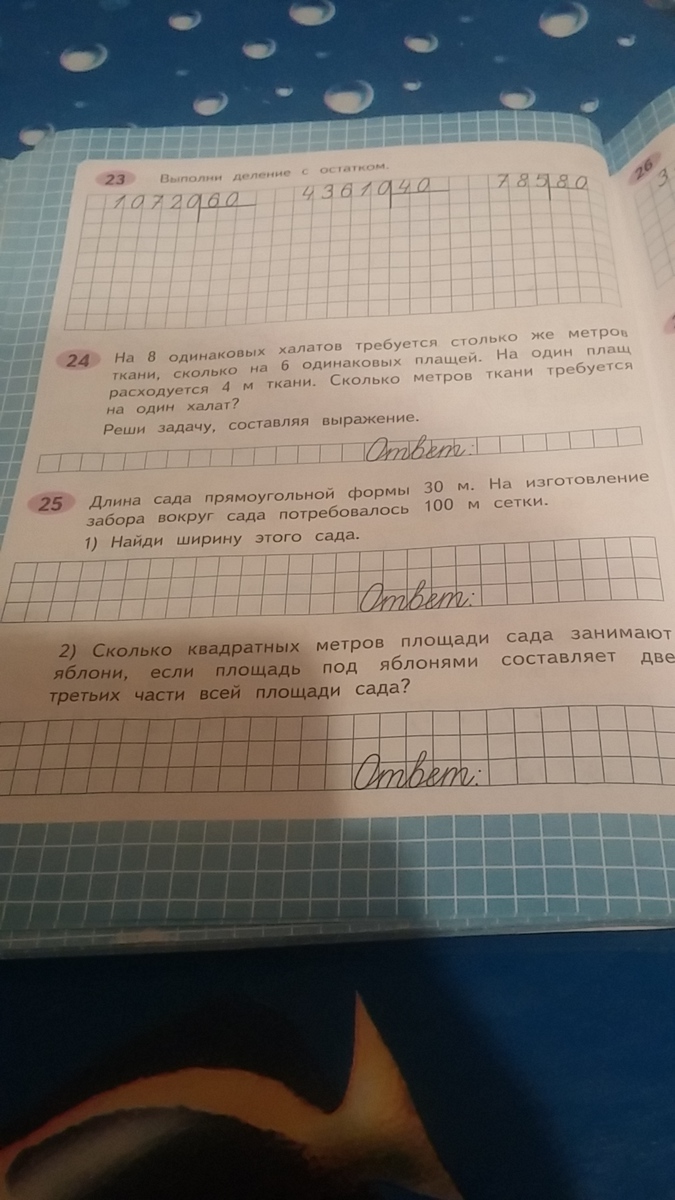 23 Выполни деление с остатком.
10720 60 43610 40 785 80
26
3
24 На 8 одинаковых халатов требуется столько же метров
ткани, сколько на 6 одинаковых плащей. На один плащ
расходуется 4 м ткани. Сколько метров ткани требуется
на один халат?
Реши задачу, составляя выражение.
Ответ:
25 Длина сада прямоугольной формы 30 м. На изготовление
забора вокруг сада потребовалось 100 м сетки.
1) Найди ширину этого сада.
Ответ:
2) Сколько квадратных метров площади сада занимают
яблони, если площадь под яблонями составляет две
третьих части всей площади сада?
Ответ: